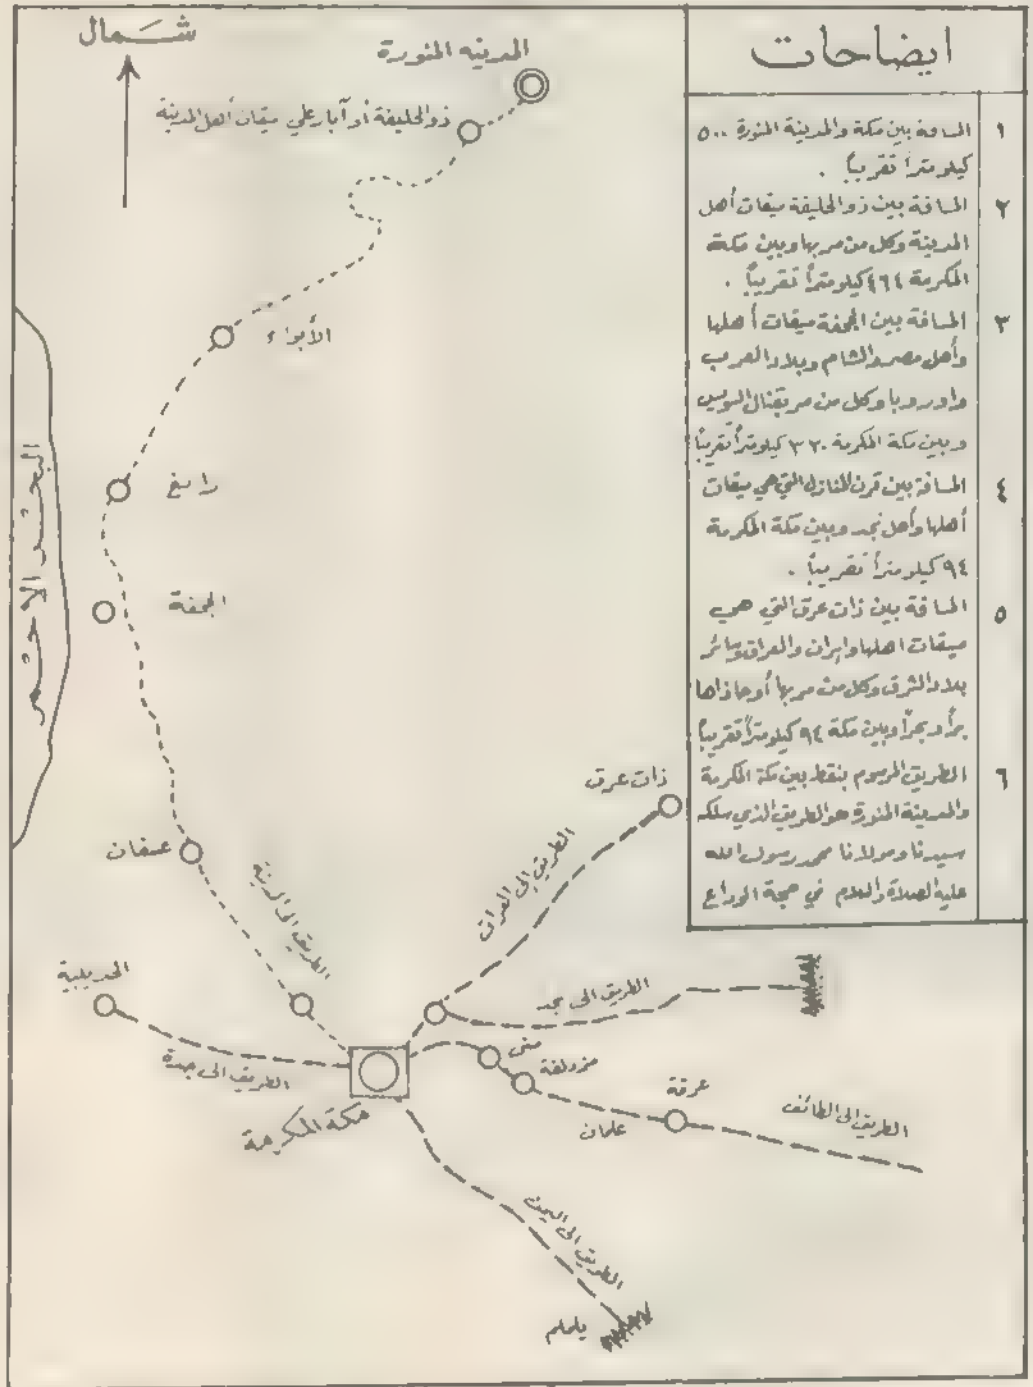 شمال
المدينه المنورة
ذو الحليفة أو آبار علي ميقات أهل المدينة
الأبواء
رابغ
الجحفة
البحر الاحمر
عسفان
الطريق الى المدينة
الحديبية
الطريق الى جدة
مكة المكرمة
ذات عرق
الطريق إلى العراق
الطريق الى نجد
منى
مزدلفة
علمان
عرفة
الطريق الى الطائف
الطريق الى اليمن
يلملم
ايضاحات
١ المسافة بين مكة والمدينة المنورة ٥٠٠
كيلو متراً تقريباً .
٢ المسافة بين ذو الحليفة ميقات أهل
المدينة وكل من مر بها وبين مكة
المكرمة ٤٦٤ كيلو متراً تقريباً .
٣ المسافة بين الجحفة ميقات أهلها
وأهل مصر والشام وبلاد العرب
واوروبا وكل من مر بقنال السويس
وبين مكة المكرمة ٣٢٠ كيلو متراً تقريباً
٤ المسافة بين قرن المنازل التي هي ميقات
أهلها وأهل نجد وبين مكة المكرمة
٩٤ كيلو متراً تقريباً .
٥ المسافة بين ذات عرق التي هي
ميقات اهلها وايران والعراق وسائر
بلاد الشرق وكل من مر بها أو حاذاها
براً وبحراً وبين مكة ٩٤ كيلو متراً تقريباً
٦ الطريق المرسوم بنقط بين مكة المكرمة
والمدينة المنورة هو الطريق الذي سلكه
سيدنا ومولانا محمد رسول الله
عليه الصلاة والسلام في حجة الوداع